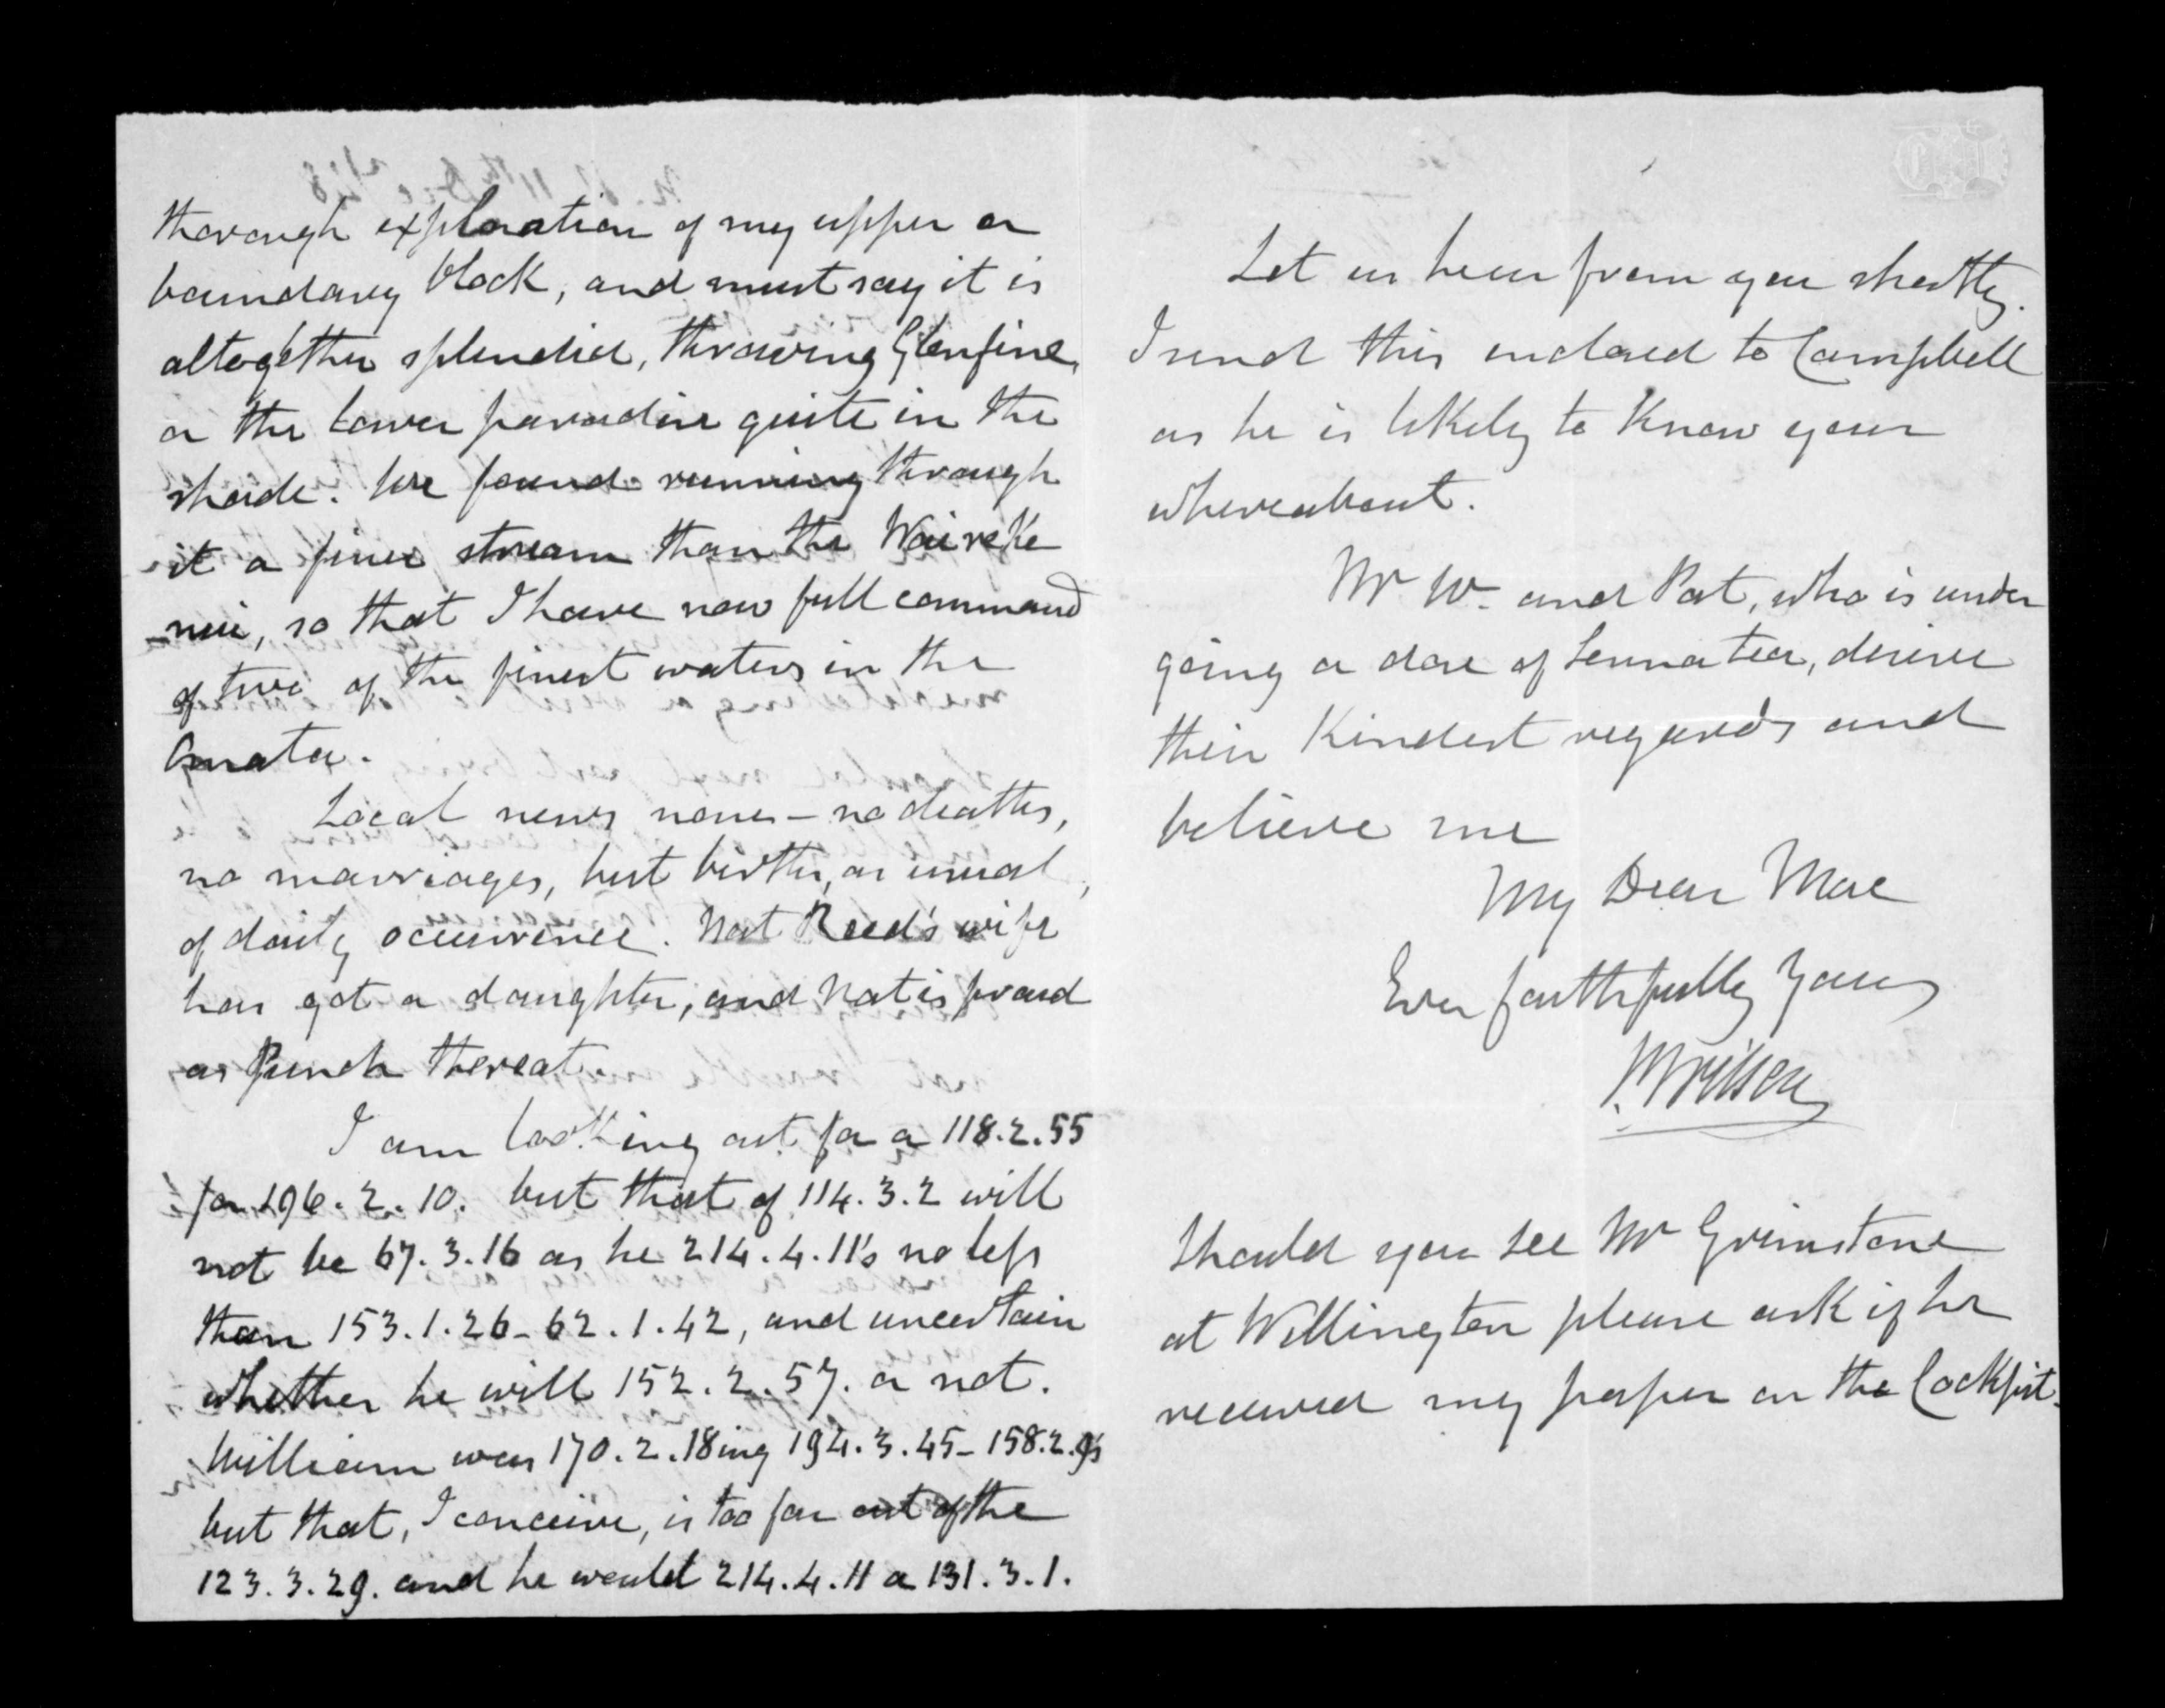 thorough exploration of my upper or
boundary block, and must say it is
altogether splendid, throwing Glenfine,
or the lower paradise quite in the
shade. We found running through
it a finer stream than the Waireke
-nui, so that I have now full command
of two of the finest waters in the
Omata.
Local news none - no deaths,
no marriages, but births, as usual,
of daily occurrence. Nat Reed's wife
has got a daughter, and Nat is proud
as Punch thereat.
I am looking out for a 118.2.55
for 196.2.10. but that of 114.3.2 will
not be 67.3.16 as he 214.4.11's no less
than 153.1.26-62.1.42, and uncertain
whether he will 152.2.57. or not.
William was 170.2.18ing 194.3.45-158.2.9's
but that, I conceive, is too far out of the
123.3.29. and he would 214.4.11 a 131.3.1.
Let us hear from you shortly.
I send this enclosed to Campbell
as he is likely to know your
whereabout.
Mr W. and Pat, who is under
going a dose of Senna tea, desire
their kindest regards and
believe me
My Dear Mac
Ever faithfully Yours
P. Wilson
Should you see Mr Grimstone
at Wellington please ask if he
received my paper on the Cockpit.